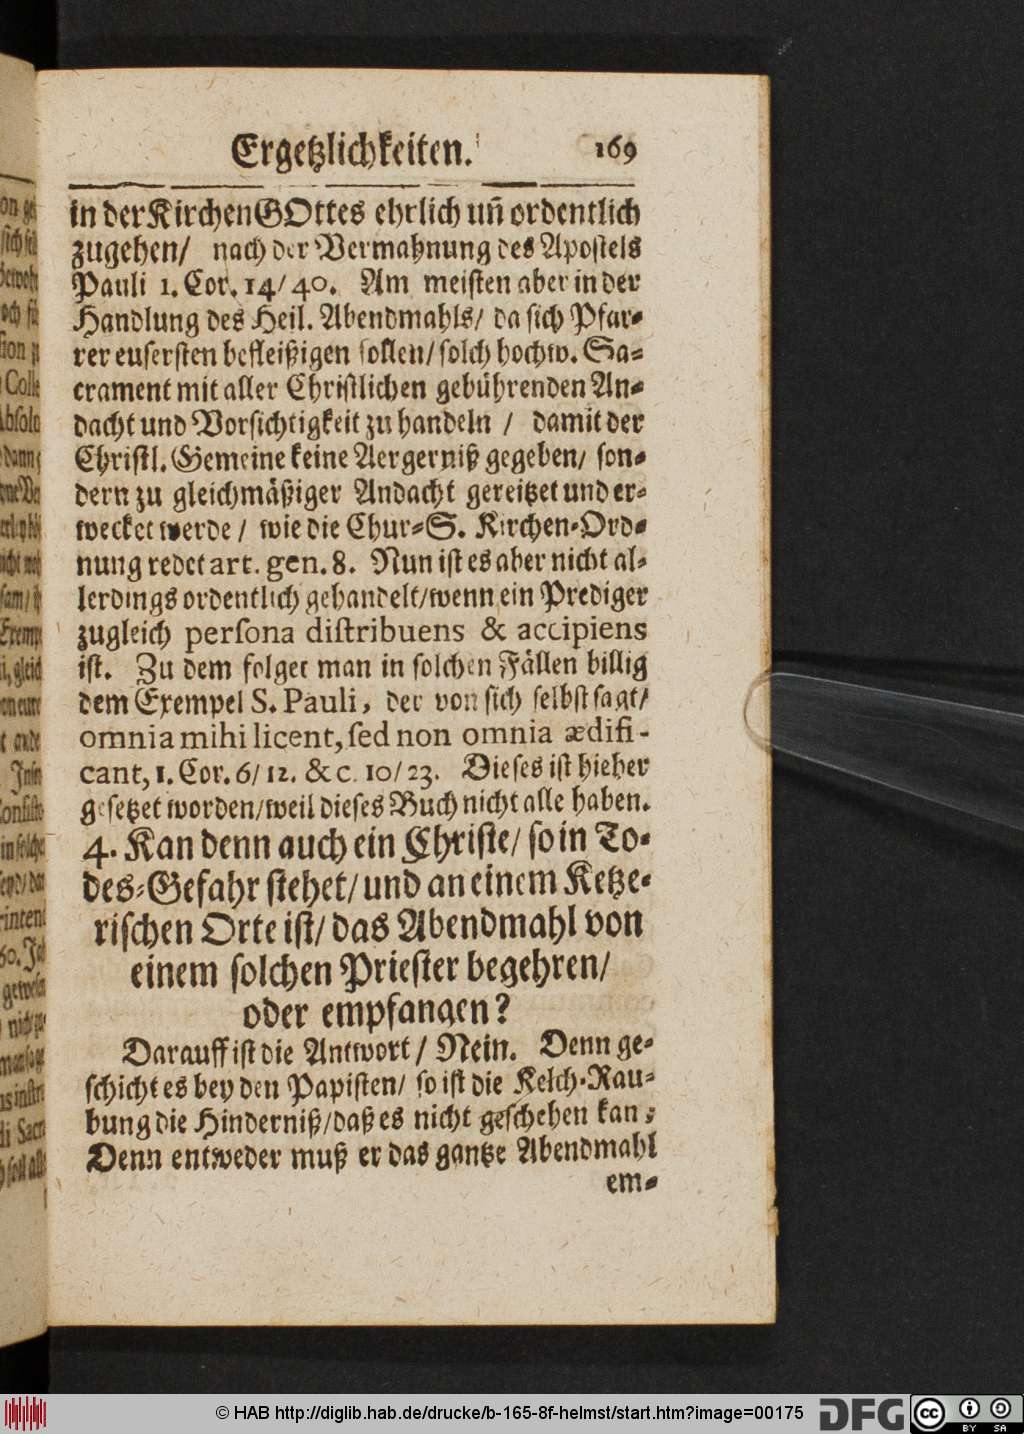 Ergetzlichkeiten. 169
in der Kirchen GOttes ehrlich uñ ordentlich
zugehen/ nach der Vermahnung des Apostels
Pauli 1. Cor. 14/ 40. Am meisten aber in der
Handlung des Heil. Abendmahls/ da sich Pfar-
rer eusersten befleißigen sollen/ solch hochw. Sa-
crament mit aller Christlichen gebührenden An-
dacht und Vorsichtigkeit zu handeln / damit der
Christl. Gemeine keine Aergerniß gegeben/ son-
dern zu gleichmäßiger Andacht gereitzet und er-
wecket werde / wie die Chur-S. Kirchen-Ord-
nung redet art. gen. 8. Nun ist es aber nicht al-
lerdings ordentlich gehandelt/ wenn ein Prediger
zugleich persona distribuens & accipiens
ist. Zu dem folget man in solchen Fällen billig
dem Exempel S. Pauli, der von sich selbst sagt/
omnia mihi licent, sed non omnia ædifi-
cant, 1. Cor. 6/ 12. & c. 10/ 23. Dieses ist hieher
gesetzet worden/ weil dieses Buch nicht alle haben.
4. Kan denn auch ein Christe/ so in To-
des-Gefahr stehet/ und an einem Ketze-
rischen Orte ist/ das Abendmahl von
einem solchen Priester begehren/
oder empfangen?
Darauff ist die Antwort / Nein. Denn ge-
schicht es bey den Papisten/ so ist die Kelch-Rau-
bung die Hinderniß/ daß es nicht geschehen kan;
Denn entweder muß er das gantze Abendmahl
em-
© HAB http://diglib.hab.de/drucke/b-165-8f-helmst/start.htm?image=00175
DFG
cc BY SA